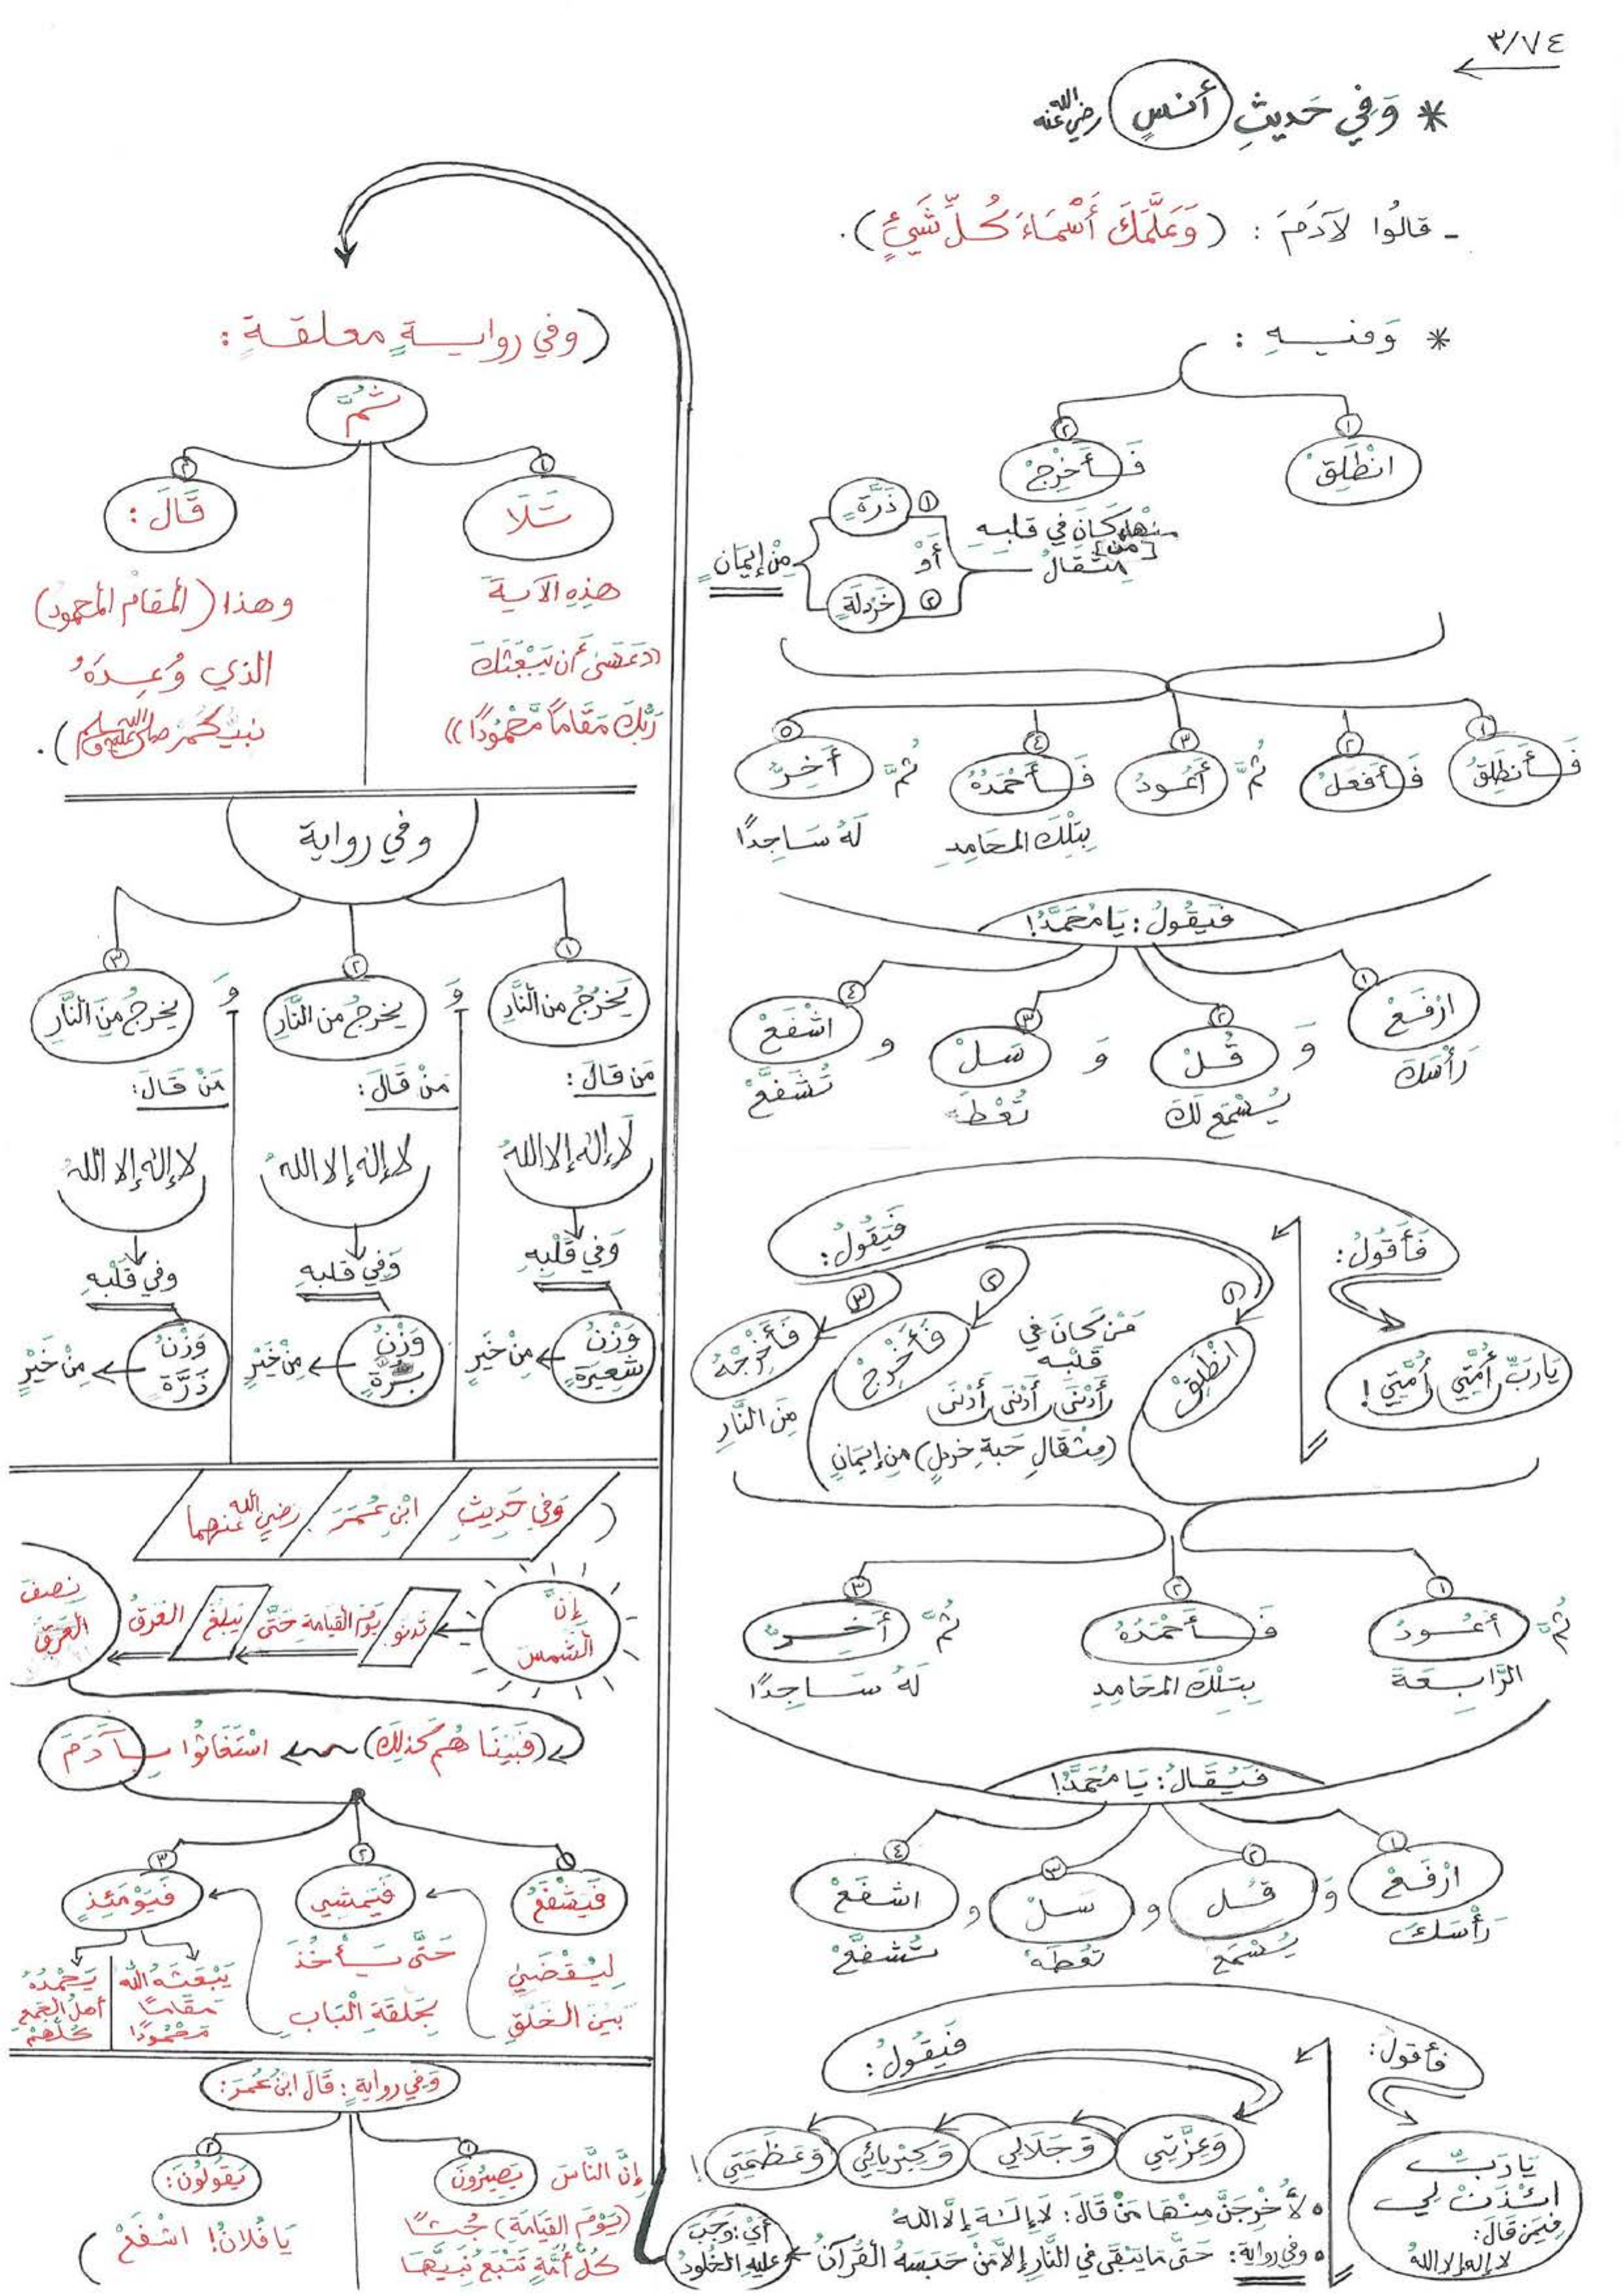 ٣/٧٤
* وَفِي حَدِيثِ أَنَسٍ رضي الله عنه
- قَالُوا لآدَمَ : (وَعَلَّمَكَ أَسْمَاءَ كُلِّ شَيْءٍ).
* وَفِيهِ :
١ انْطَلِقْ
٢ فَأَخْرِجْ
مِنْهَا مَنْ كَانَ فِي قَلْبِهِ
مِثْقَالُ
١ ذَرَّةٍ
أَوْ
٢ خَرْدَلَةٍ
مِنْ إِيمَانٍ
١ فَأَنْطَلِقُ
٢ فَأَفْعَلُ
٣ ثُمَّ أَعُودُ
٤ فَأَحْمَدُهُ
بِتِلْكَ المَحَامِدِ
٥ ثُمَّ أَخِرُّ
لَهُ سَاجِدًا
فَيَقُولُ : يَا مُحَمَّدُ!
١ ارْفَعْ
رَأْسَكَ
٢ وَ قُلْ
يُسْمَعْ لَكَ
٣ وَ سَلْ
تُعْطَهْ
٤ و اشْفَعْ
تُشَفَّعْ
فَأَقُولُ :
يَا رَبِّ أُمَّتِي أُمَّتِي !
فَيَقُولُ :
١ انْطَلِقْ
٢ فَأَخْرِجْ
مَنْ كَانَ فِي
قَلْبِهِ
أَدْنَى أَدْنَى أَدْنَى
(مِثْقَالِ حَبَّةِ خَرْدَلٍ) مِنْ إِيمَانٍ
٣ فَأَخْرِجْهُ
مِنَ النَّارِ
١ ثُمَّ أَعُودُ
الرَّابِعَةَ
٢ فَأَحْمَدُهُ
بِتِلْكَ المَحَامِدِ
٣ ثُمَّ أَخِرُّ
لَهُ سَاجِدًا
فَيُقَالُ : يَا مُحَمَّدُ!
١ ارْفَعْ
رَأْسَكَ
٢ وَ قُلْ
يُسْمَعْ
٣ و سَلْ
تُعْطَهْ
٤ و اشْفَعْ
تُشَفَّعْ
فَأَقُولُ :
يَا رَبِّ
ائْذَنْ لِي
فِيمَنْ قَالَ :
لا إله إلا الله
فَيَقُولُ :
وَعِزَّتِي
وَجَلَالِي
وَكِبْرِيَائِي
وَعَظَمَتِي !
• لَأُخْرِجَنَّ مِنْهَا مَنْ قَالَ : لَا إِلَهَ إِلَّا اللهُ
• وفي رواية : حَتَّى مَا يَبْقَى فِي النَّارِ إِلَّا مَنْ حَبَسَهُ الْقُرْآنُ
أَيْ : وَجَبَ
عَلَيْهِ الخُلُودُ
(وفي روايةٍ معلقةٍ :
ثُمَّ
١ تَلَا
هَذِهِ الآيَةَ
((عَسَى أَن يَبْعَثَكَ
رَبُّكَ مَقَامًا مَّحْمُودًا))
٢ قَالَ :
وهذا (الْمَقَامُ الْمَحْمُودُ)
الذي وُعِدَهُ
نَبِيُّكُمْ صلى الله عليه وسلم).
وفي رواية
١ يَخْرُجُ مِنَ النَّارِ
مَنْ قَالَ :
لَا إِلَهَ إِلَّا اللهُ
وَفِي قَلْبِهِ
وَزْنُ
شَعِيرَةٍ
مِنْ خَيْرٍ
وَ
٢ يَخْرُجُ مِنَ النَّارِ
مَنْ قَالَ :
لا إله إلا الله
وَفِي قَلْبِهِ
وَزْنُ
بُرَّةٍ
مِنْ خَيْرٍ
وَ
٣ يَخْرُجُ مِنَ النَّارِ
مَنْ قَالَ :
لا إله إلا الله
وفي قَلْبِهِ
وَزْنُ
ذَرَّةٍ
مِنْ خَيْرٍ
( وَفِي حَدِيثِ ابْنِ عُمَرَ رضي الله عنهما
إِنَّ
الشَّمْسَ
تَدْنُو
يَوْمَ القِيَامَةِ حَتَّى
يَبْلُغَ
العَرَقُ
نِصْفَ
الْعَرَقِ
(فَبَيْنَا هُمْ كَذَلِكَ) اسْتَغَاثُوا بِآدَمَ
١ فَيَشْفَعُ
لِيُقْضَى
بَيْنَ الْخَلْقِ
٢ فَيَمْشِي
حَتَّى يَأْخُذَ
بِحَلْقَةِ الْبَابِ
٣ فَيَوْمَئِذٍ
يَبْعَثُهُ اللهُ
مَقَامًا
مَحْمُودًا
يَحْمَدُهُ
أَهْلُ الْجَمْعِ
كُلُّهُمْ
وَفِي رواية : قَالَ ابْنُ عُمَرَ :
إِنَّ النَّاسَ
١ يَصِيرُونَ
(يَوْمَ القِيَامَةِ) جُثًا
كُلُّ أُمَّةٍ تَتْبَعُ نَبِيَّهَا
٢ يَقُولُونَ :
يَا فُلَانُ! اشْفَعْ )